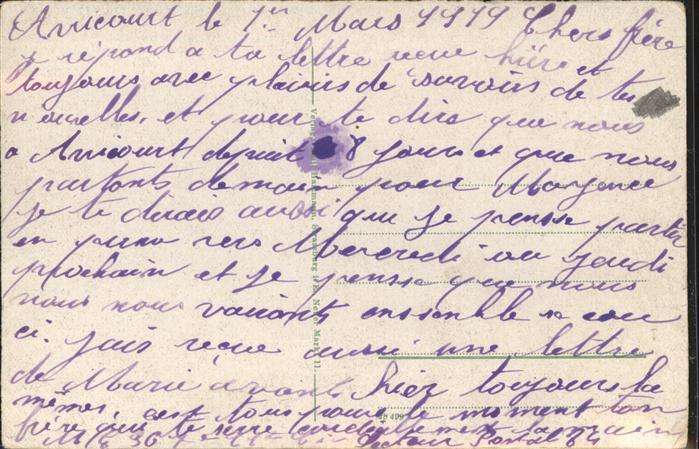 Avricourt le 1er Mars 1919 Chers frère
je répond a ta lettre reçue hière et
toujours avec plaisir de savoir de tes
nouvelles, et pour te dire que nous
a Avricourt depuit 8 jours et que nous
partons demain pour Mayence
Je te dirais aussi que je pense partir
en perme vers Mercredi ou jeudi
prochain et je pense que nous
nous nous vairons ensemble se cou
ci. jais reçue aussi une lettre
de Marie avants hiez toujours la
mêmes, cest tous pour le moment ton
frère que te serre cordiallement la main
Secteur Postal 84